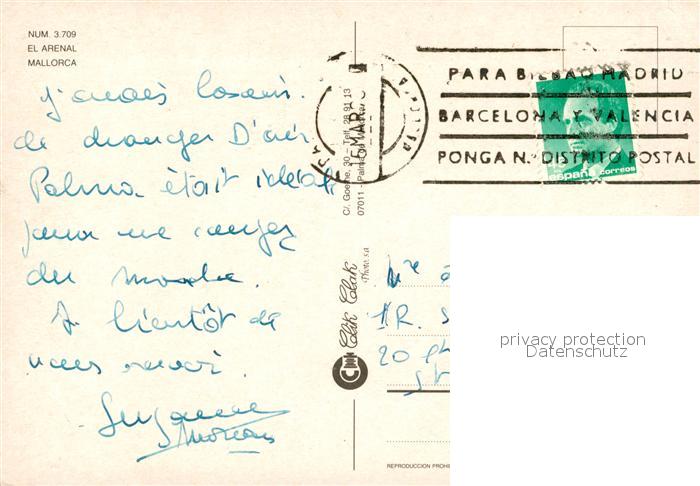 NUM. 3.709
EL ARENAL
MALLORCA
j'avais besoin
de changer D'air
Palma était idéal
pour me
du monde.
A bientôt de
vous revoir.
Suzanne
Moreau
C/. Goethe, 30 – Telf. 28 91 13
07011 - Palma de Mallorca
Clik Clak
Photo, s.a.
15 MAR
PARA BILBAO MADRID
BARCELONA Y VALENCIA
PONGA N. DISTRITO POSTAL
españa correos
20
REPRODUCCION PROHI
privacy protection
Datenschutz